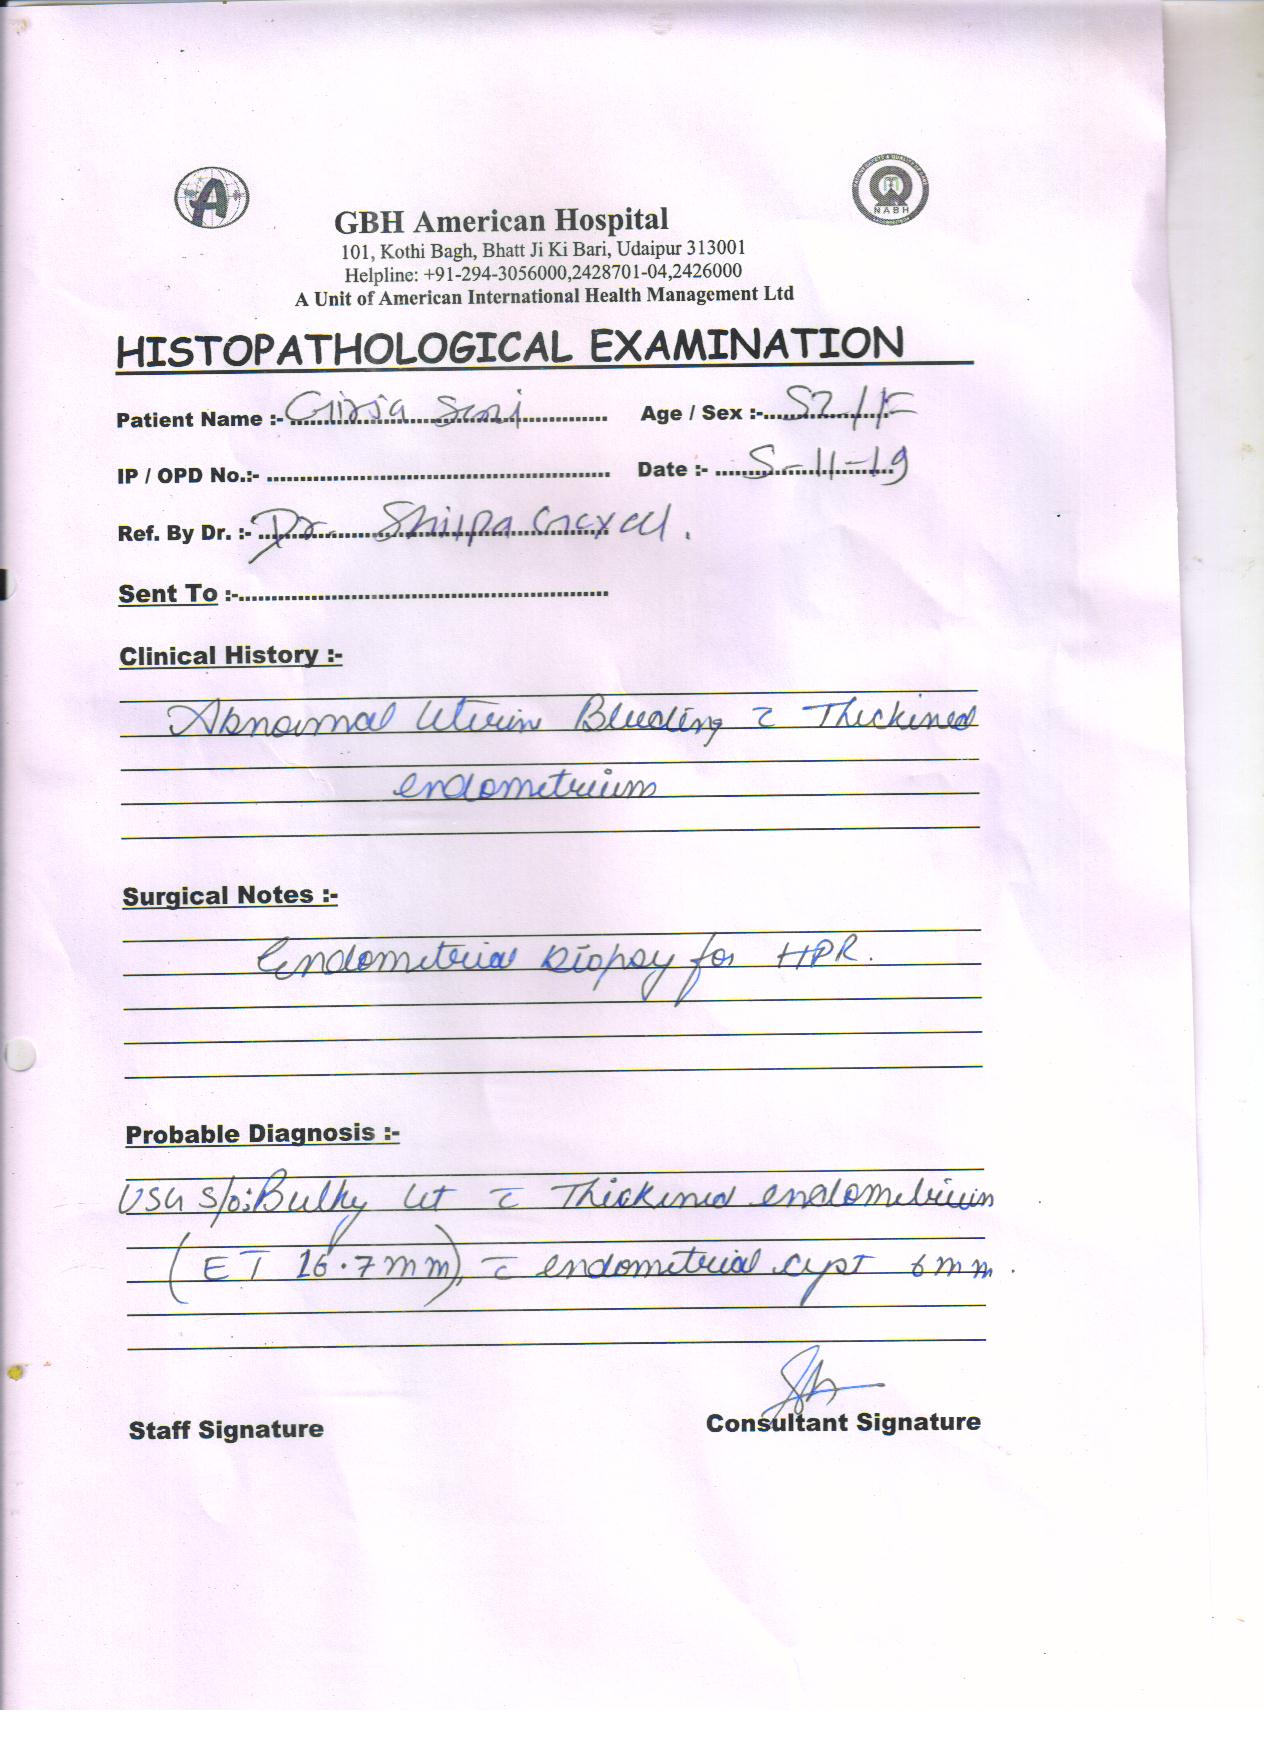 A
NABH
GBH American Hospital
101, Kothi Bagh, Bhatt Ji Ki Bari, Udaipur 313001
Helpline: +91-294-3056000,2428701-04,2426000
A Unit of American International Health Management Ltd
HISTOPATHOLOGICAL EXAMINATION
Patient Name :- Girja Soni Age / Sex :- 52/F
IP / OPD No.:- Date :- 5-11-19
Ref. By Dr. :- Dr. Shilpa Goyal.
Sent To :-
Clinical History :-
Abnormal Uterin Bleeding c̄ Thickined
endometrium
Surgical Notes :-
Endometrial Biopsy for HPR.
Probable Diagnosis :-
USG S/o: Bulky Ut c̄ Thickined endometrium
(ET 16.7mm), c̄ endometrial cyst 6mm.
Staff Signature Consultant Signature